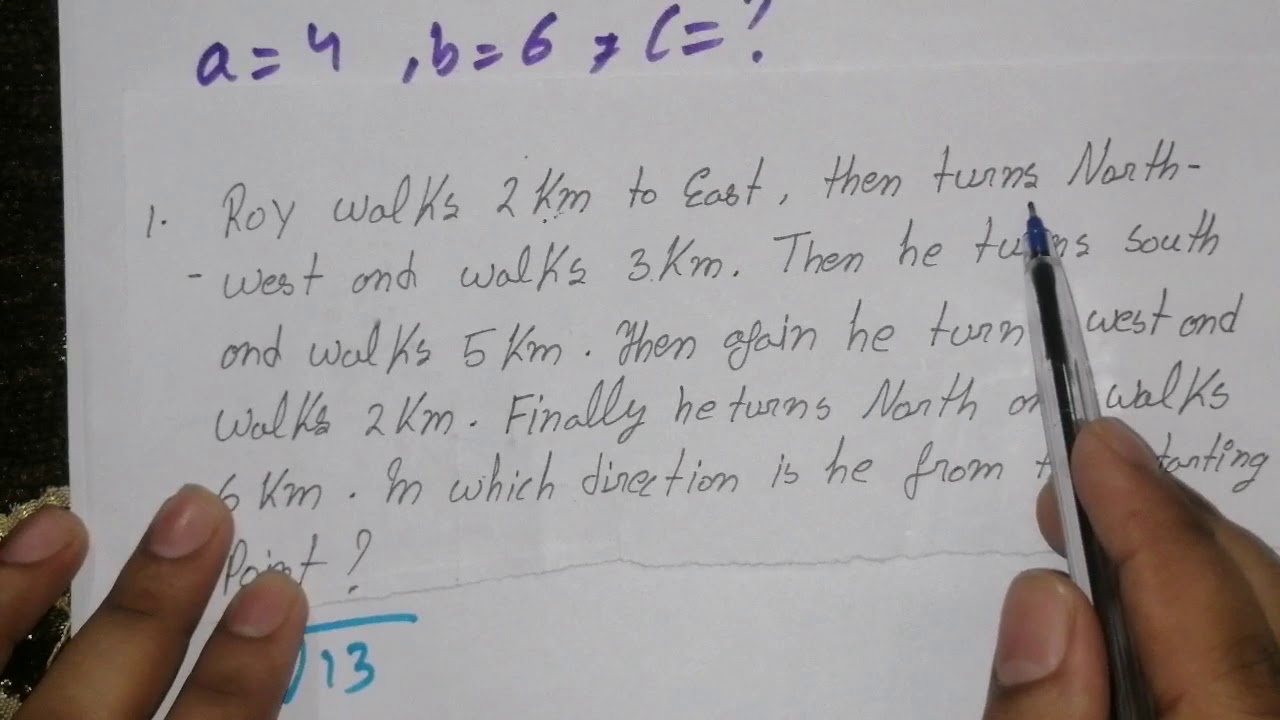 a = 4 , b = 6 , C = ?
1. Roy walks 2 Km to East, then turns North-
- west and walks 3 Km. Then he turns south
and walks 5 Km. Then again he turn west and
walks 2 Km. Finally he turns North walks
6 Km. In which direction is he from
Point ?
√13